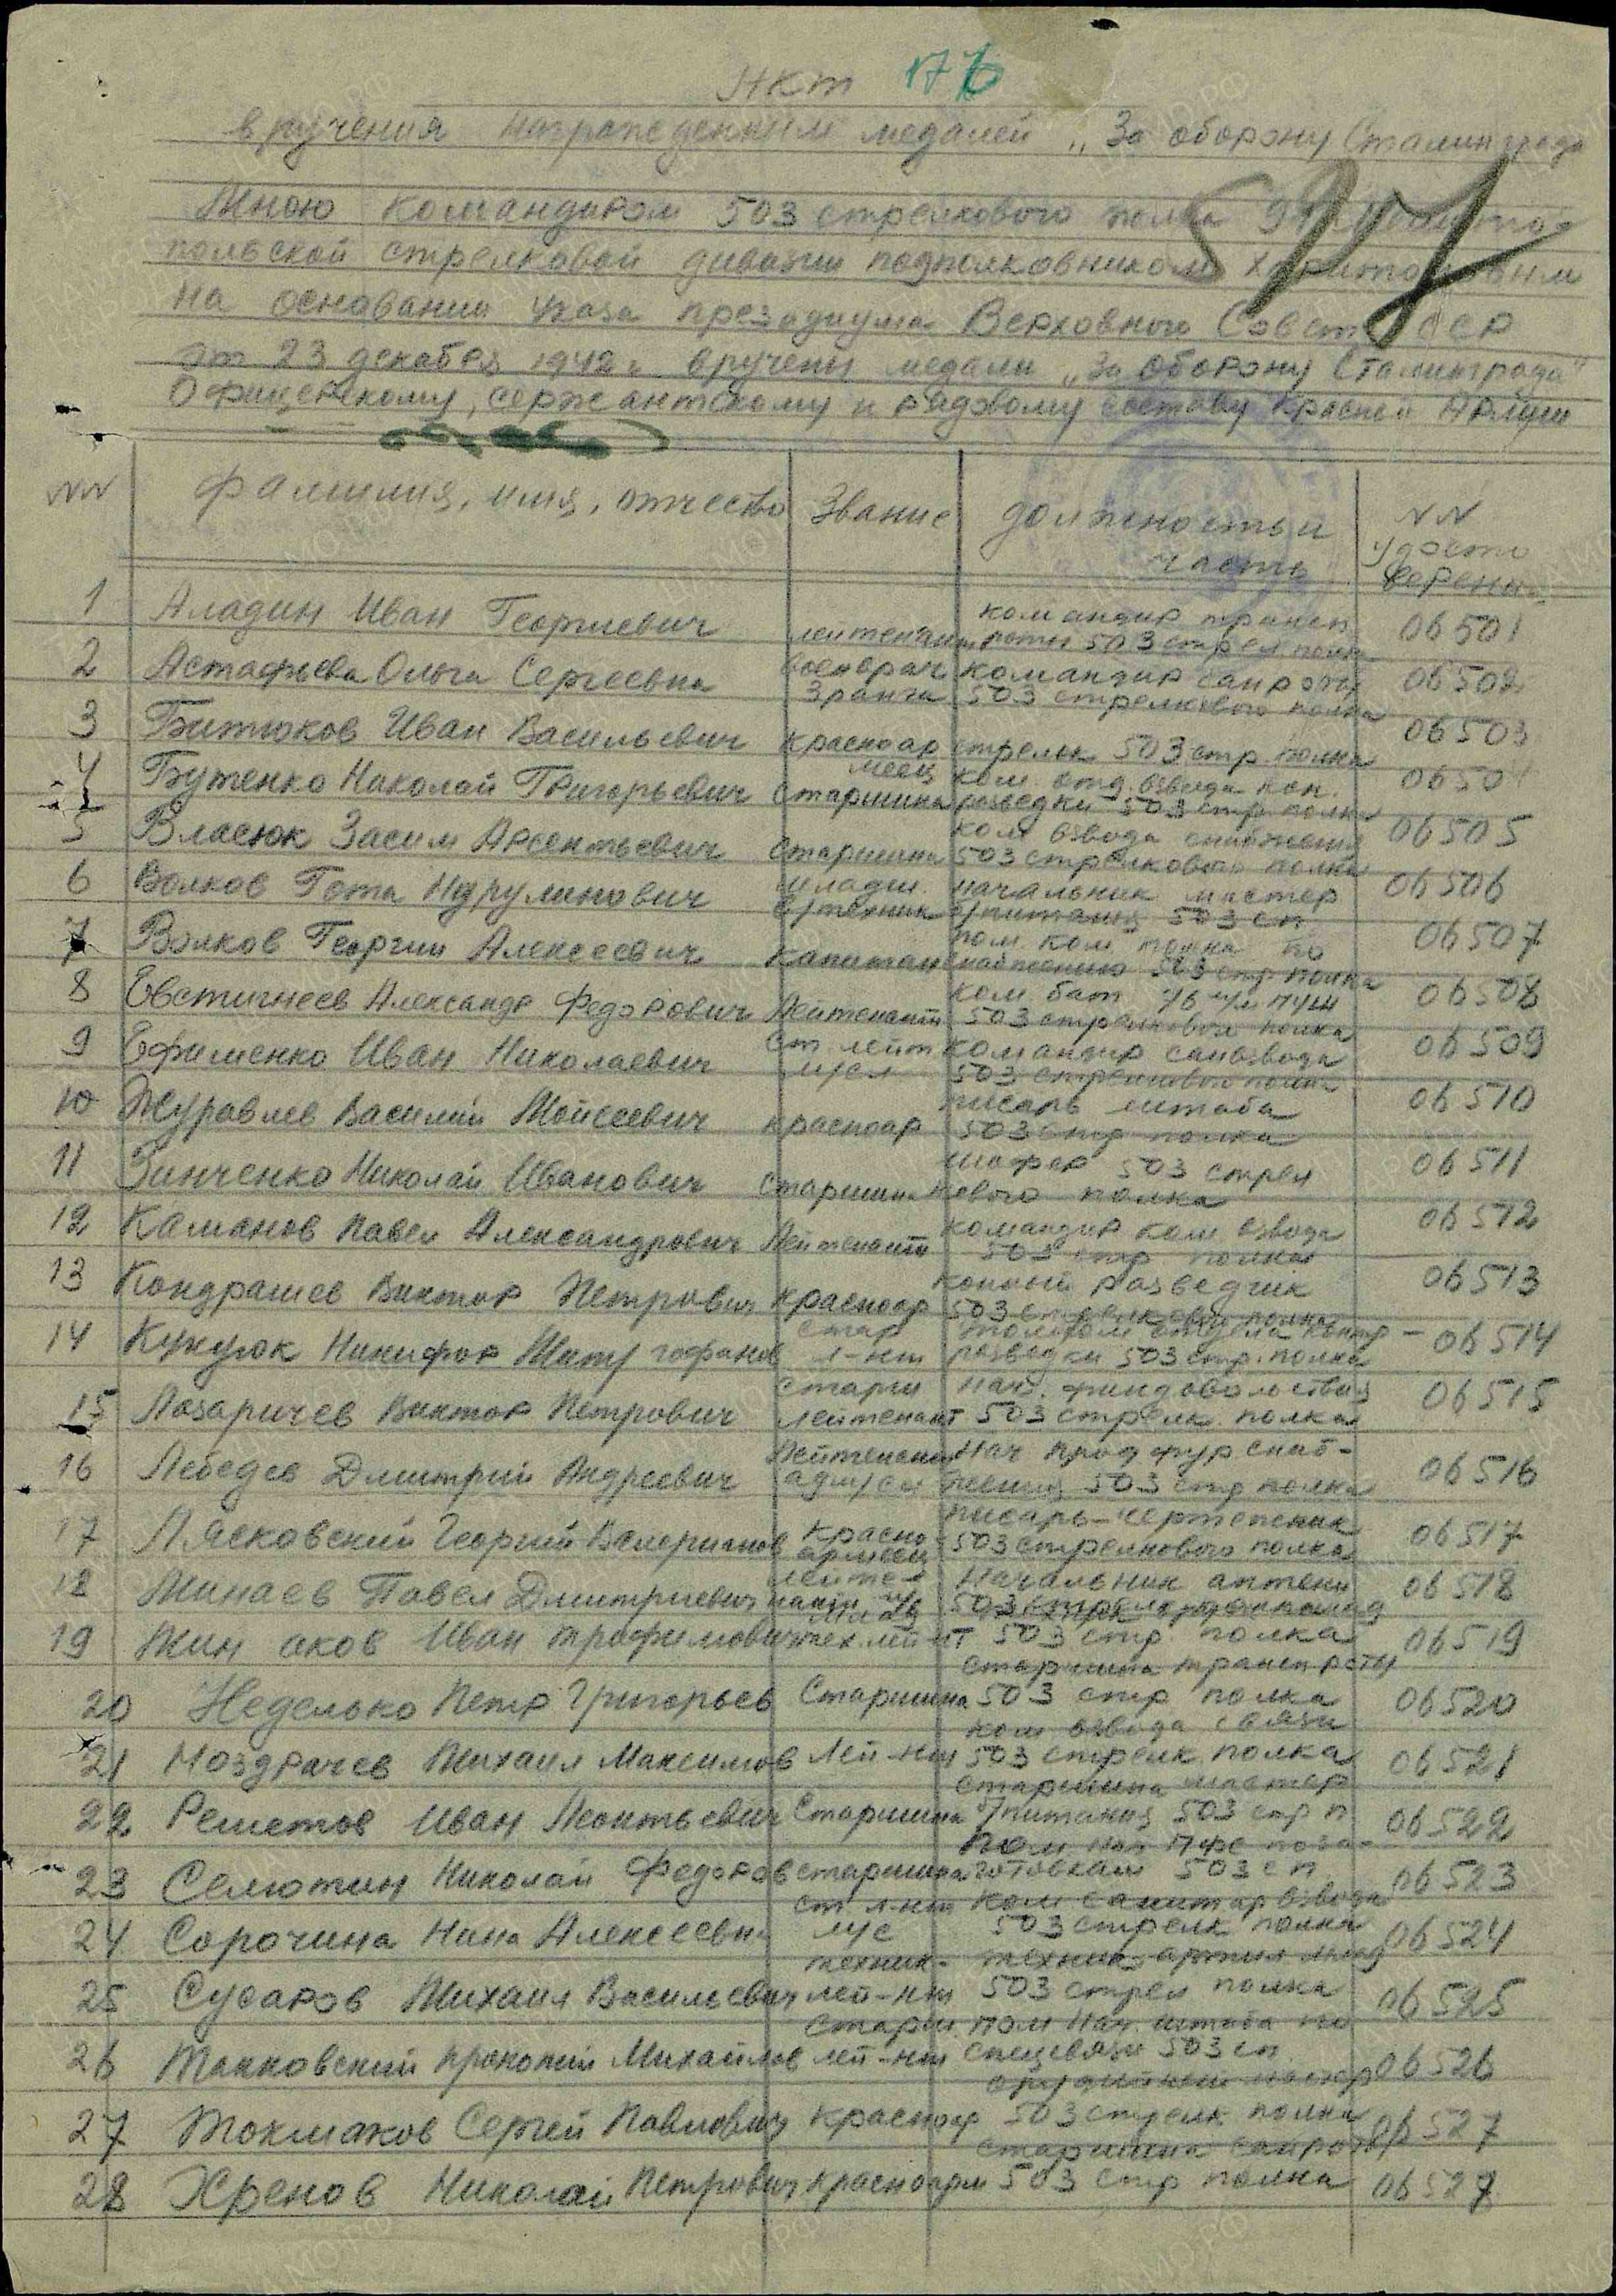 Акт 176
вручения награжденным медалей „За оборону Сталинграда
517
Мною командиром 503 стрелкового полка 91 Мелито-
польской стрелковой дивизии подполковником
на основании Указа президиума Верховного Совета СССР
от 23 декабря 1942 г. вручены медали „За оборону Сталинграда"
Офицерскому, сержантскому и рядовому составу Красной Армии
NN Фамилия, имя, отчество Звание должность и часть NN удостоверений
1 Аладин Иван Георгиевич лейтенант командир трансп роты 503 стрел. полка 06501
2 Астафьева Ольга Сергеевна военврач 3 ранга командир санроты 503 стрелкового полка 06502
3 Битюков Иван Васильевич красноармеец стрелок 503 стр. полка 06503
4 Бутенко Николай Григорьевич старшина ком. отд. взвода кон. разведки 503 стр. полка 0650
5 Власюк Засим Арсентьевич старшина ком взвода снабжения 503 стрелкового полка 06505
6 Волков Гота младш. в/техник начальник мастер б/питания 503 сп 06506
7 Волков Георгий Алексеевич капитан пом. ком. полка по снабжению 503 стр. полка 06507
8 Евстигнеев Александр Федорович Лейтенант ком. бат 76 м/м пуш 503 стрелковый полка 06508
9 Ефименко Иван Николаевич ст. лейт м/сл командир санвзвода 503 стрелковый полка 06509
10 Журавлев Василий Мойсеевич красноар писарь штаба 503 стр полка 06510
11 Зинченко Николай Иванович старшина шофер 503 стрелкового полка 06511
12 Каманов Павел Александрович Лейтенант командир ком. взвода 503 стр. полка 06512
13 Кондрашев Виктор Петрович красноар конный разведчик 503 стрелковый полка 06513
14 Кукулок Никифор Митрофанов стар л-нт отдела контр-разведки 503 стр. полка 06514
15 Лазаричев Виктор Петрович старш лейтенант Нач. финдовольствия 503 стрелк. полка 06515
16 Лебедев Дмитрий Андреевич Лейтенант адм/сл Нач прод фур снаб-жения 503 стр полка 06516
17 Лясковский Георгий Валерианов красноармеец писарь-чертежник 503 стрелкового полка 06517
18 Минаев Павел Дмитриевич лейтенант Начальник аптеки 06518
19 Мин аков Иван Трофимович тех. лейт 503 стр. полка 06519
20 Неделько Петр Григорьев Старшина старшина трансп роты 503 стр полка 06520
21 Ноздрачев Михаил Максимов Лей-нт ком взвода связи 503 стрелк. полка 06521
22 Решетов Иван Леонтьевич Старшина старшина мастер б/питания 503 стр п 06522
23 Селютин Николай Федоров старшина пом нач ПФС по заготовкам 503 сп 06523
24 Сорочина Нина Алексеевна ст л-нт м/с ком санитар взвода 503 стрелк полка 06524
25 Сусаров Михаил Васильевич техник-лей-нт техник 503 стрел полка 06525
26 Танковский Прокопий Михайлов старш. лей-нт пом нач. штаба по спецсвязи 503 сп. 06526
27 Токмаков Сергей Павлович красноар орудийный мастер 503 стрелк полка 06527
28 Хренов Николай Петрович красноарм старшина санроты 503 стр полка 06528